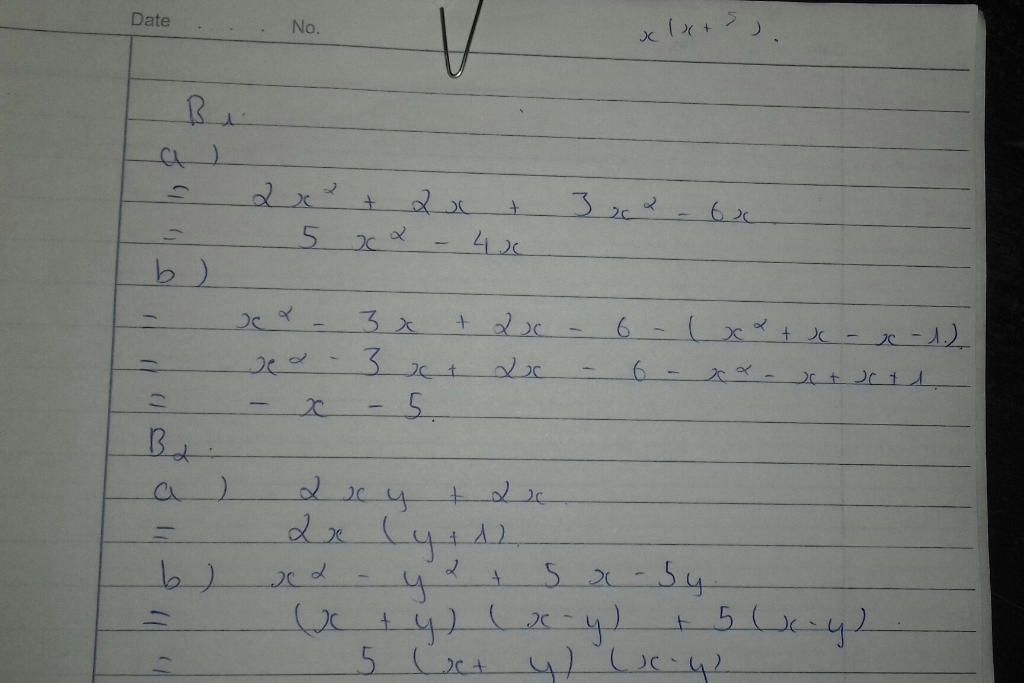 Date . . . . No.
x(x+5).
B1.
a)
= 2x² + 2x + 3x² - 6x
= 5x² - 4x
b)
= x² - 3x + 2x - 6 - (x² + x - x - 1).
= x² - 3x + 2x - 6 - x² - x + x + 1.
= - x - 5.
B2.
a) 2xy + 2x.
= 2x (y + 1).
b) x² - y² + 5x - 5y.
= (x + y) (x - y) + 5 (x - y).
= 5 (x + y) (x - y)